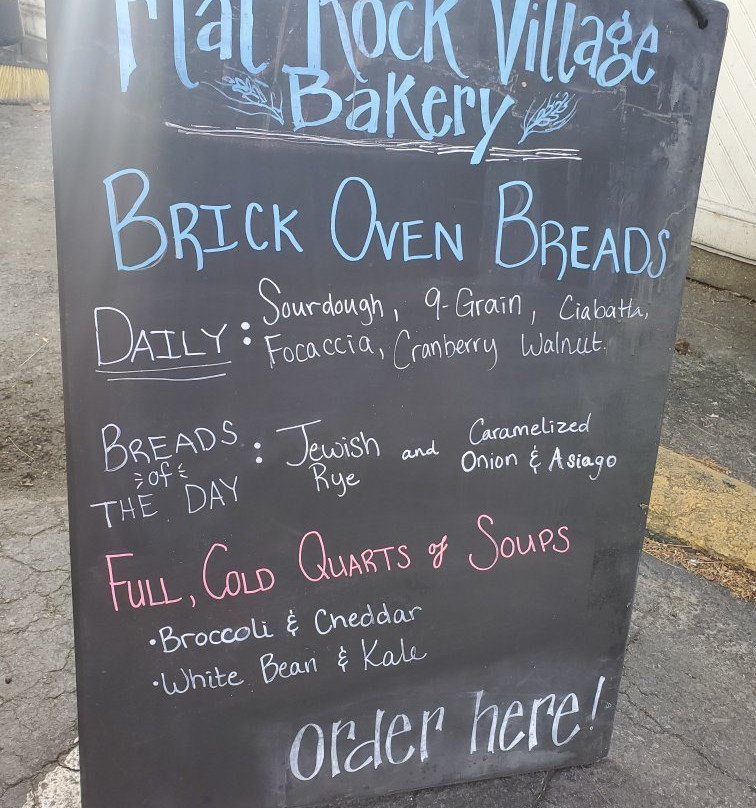 Flat Rock Village
Bakery
BRICK OVEN BREADS
DAILY: Sourdough, 9-Grain, Ciabatta,
Focaccia, Cranberry Walnut.
BREADS of THE DAY: Jewish Rye and Caramelized Onion & Asiago
FULL, COLD QUARTS of SOUPS
• Broccoli & Cheddar
• White Bean & Kale
order here!